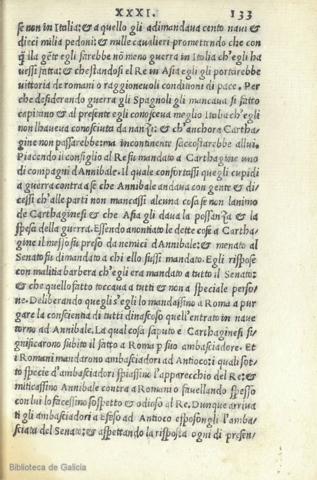 XXXI. 133
se non in Italia: & a quello gli adimandaua cento naui &
dieci milia pedoni: & mille caualieri prometendo che con
q̃ lla gẽte egli farebbe nõ meno guerra in Italia ch'egli ha
uessi fatta; & che stando si el Re in Asia egli gli portarebbe
uittoria de romani o ragioneuoli conditioni di pace. Per
che desiderando guerra gli Spagnoli gli mancaua si fatto
capitano & al presente egli conosceua meglio Italia ch'egli
non l'haueua conosciuta da nanzi: & ch'anchora Cartha
gine non passarebbe: ma incontinente saccostarebbe allui.
Piacendo il consiglio al Re fu mandato a Carthagine uno
di compagni d'Annibale. Il quale confortassi quegli cupidi
a guerra contra a se che Annibale andaua con gente & di/
cessi ch'alle parti non mancassi alcuna cosa se non l'animo
de Carthaginesi & che Asia gli daua la possanza & la
spesa della guerra. Essendo anontiato le dette cose a Cartha
gine il messo fu preso da nemici d'Annibale: & menato al
Senato fu dimandato a chi ello fussi mandato. Egli rispose
con malitia barbera ch'egli era mandato a tutto il Senato:
& che quello fatto toccaua a tutti & non a speciale perso/
ne. Deliberando quegli s'egli lo mandassino a Roma a pur
gare la conscientia di tutti dinascoso quell'entrato in naue
torno ad Annibale. La qual cosa saputo e Carthaginesi si/
gnificarono subito il fatto a Roma p̃ suo ambasciadore. Et
i Romani mandarono ambasciadori ad Antioco: i quali sot/
to specie d'ambasciadori spiassino l'apparecchio del Re: &
miticassino Annibale contra a Romani o fauellando spesso
con lui lo facessino sospetto & odioso al Re. Dunque arriua
ti gli ambasciadori a Efeso ad Antioco esposongli l'amba/
sciata del Senato: & aspettando la risposta ogni di presen/
Biblioteca de Galicia